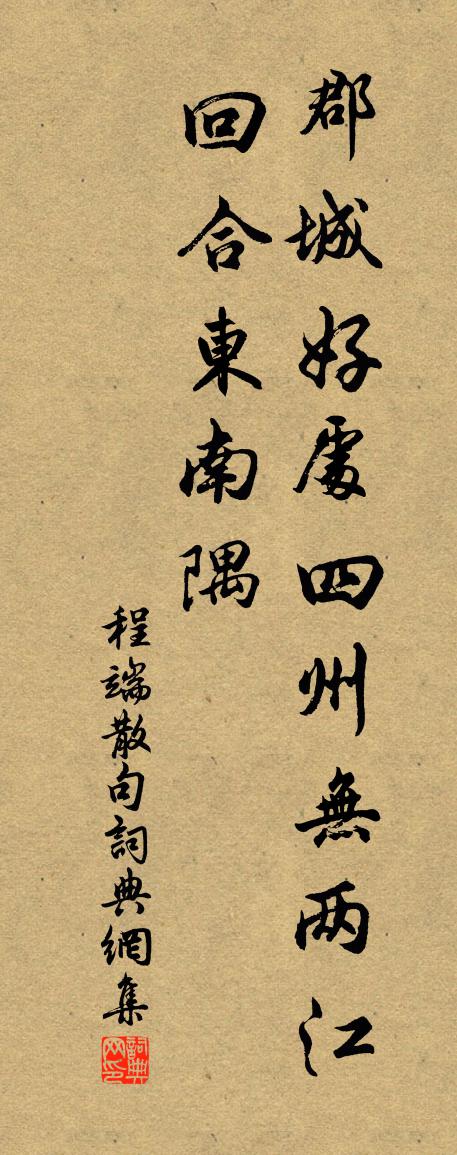 郡城好處四州無两江
回合東南隅
程端散句詞典網集
詞典网印